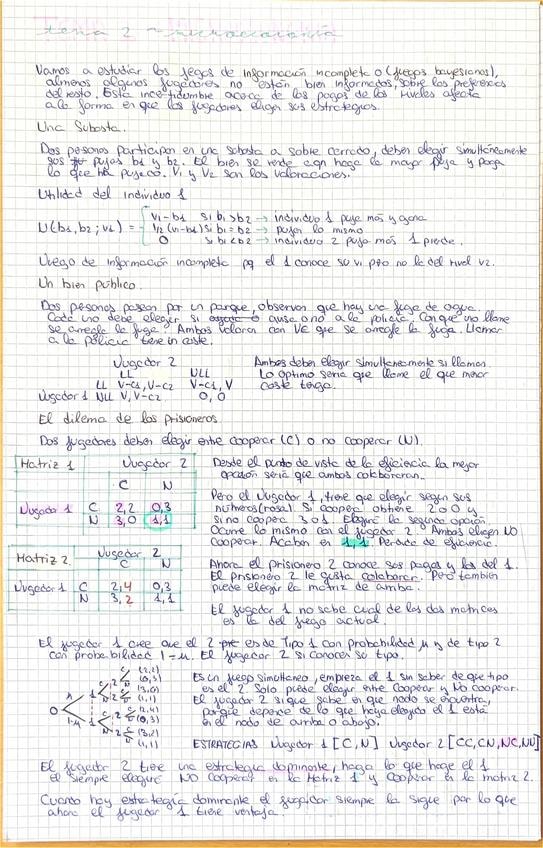 tema 2 ~ microeconomía
Vamos a estudiar los jegos de información incompleta o (juegos bayesianos),
almenos algunos jugadores no están bien informados, sobre las preferencias
del resto. Esta incertidumbre acerca de los pagos de los rivales afecta
a la forma en que los jugadores eligen sus estrategias.
Una Subasta.
Dos personas participan en una subasta a sobre cerrado, deben elegir simultáneamente
sus pujas b1 y b2. El bien se vende a qn haga la mayor puja y paga
lo que ha pujado. V1 y V2 son las valoraciones.
Utilidad del individuo 1
U(b1, b2; v1) =
V1-b1 si b1>b2 → individuo 1 puja más y gana
1/2 (v1-b1) si b1=b2 → pujan lo mismo
0 si b1<b2 → individuo 2 puja más 1 pierde.
Juego de información incompleta pq el 1 conoce su v1 pero no la del rival v2.
Un bien público.
Dos personas pasean por un parque, observan que hay una fuga de agua.
Cada uno debe elegir si avisa o no a la policia. Con que uno llame
se arregla la fuga. Ambos valoran con V€ que se arregle la fuga. Llamar
a la policia tiene un coste.
Jugador 2
LL NLL
LL V-C1, V-C2 V-C1, V
Jugador 1 NLL V, V-C2 0, 0
Ambos deben elegir simultaneamente si llaman.
Lo optimo seria que llame el que menor
coste tenga.
El dilema de los prisioneros
Dos jugadores deben elegir entre cooperar (C) o no cooperar (N).
Matriz 1 Jugador 2
C N
Jugador 1 C 2,2 0,3
N 3,0 1,1
Desde el punto de vista de la eficiencia la mejor
opción sería que ambos colaboraran.
Pero el Jugador 1, tiene que elegir segun sus
números (rosa). Si coopera obtiene 2 o 0 y
si no coopera 3 o 1. Elegirá la segunda opción.
Ocurre lo mismo con el jugador 2. Ambos eligen NO
cooperar. Acaban en 1,1. Perdida de eficiencia.
Matriz 2 Jugador 2
C N
Jugador 1 C 2,4 0,3
N 3,2 1,1
Ahora el prisionero 2 conoce sus pagos y los del 1.
El prisionero 2 le gusta colaborar. Pero también
puede elegir la matriz de arriba.
El jugador 1 no sabe cual de las dos matrices
es la del juego actual.
El jugador 1 cree que el 2 es de Tipo 1 con probabilidad μ y de tipo 2
con probabilidad 1-μ. El jugador 2 si conoce su tipo.
0 μ 1-μ 1 1 C N C N 2 2 2 2
(2,2)
(0,3)
(3,0)
(1,1)
(2,4)
(0,3)
(3,2)
(1,1)
Es un juego simultaneo, empieza el 1 sin saber de que tipo
es el 2. Solo puede elegir entre Cooperar y No cooperar.
El jugador 2 si que sabe en que nodo se encuentra,
porque depende de lo que haya elegido el 1 está
en el nodo de arriba o abajo.
ESTRATEGIAS Jugador 1 [C, N] Jugador 2 [CC, CN, NC, NN]
El jugador 2 tiene una estrategia dominante, haga lo que haga el 1
el siempre elegirá NO cooperar en la Matriz 1 y Cooperar en la matriz 2.
Cuando hay estrategia dominante el jugador siempre la sigue por lo que
ahora el jugador 1 tiene ventaja.